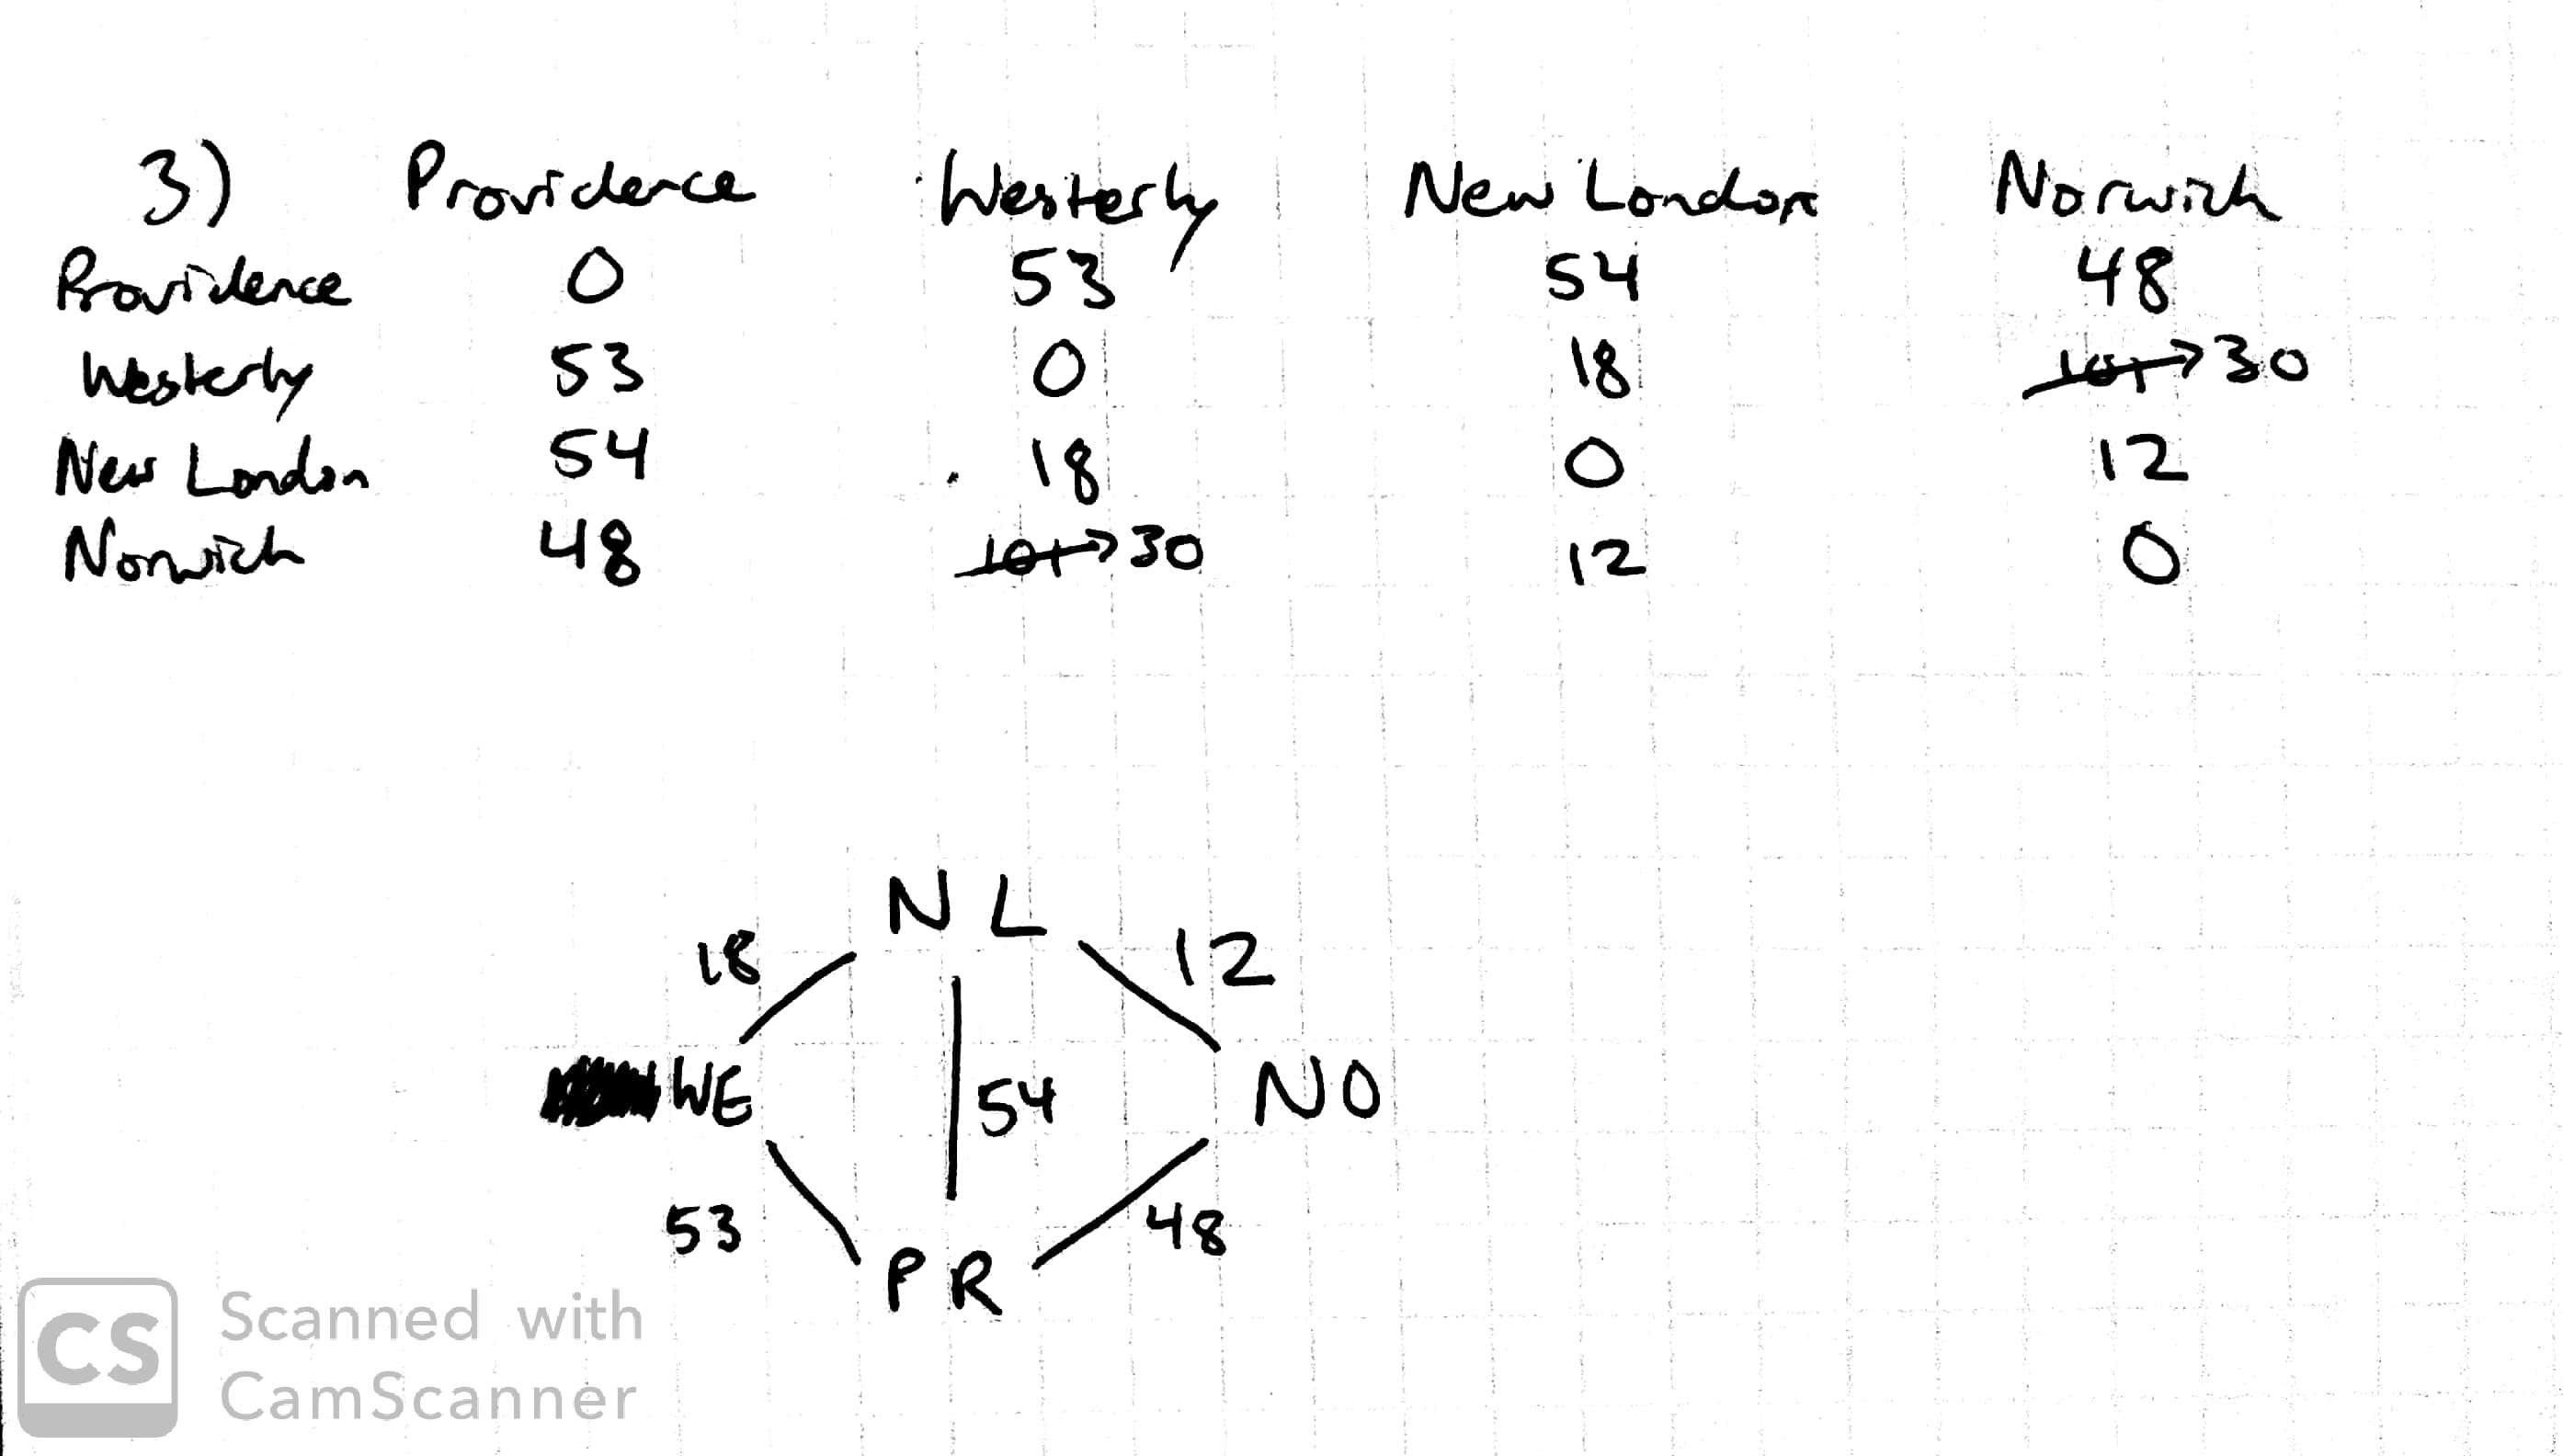 3) Providence Westerly New London Norwich
Providence 0 53 54 48
Westerly 53 0 18 101→30
New London 54 18 0 12
Norwich 48 101→30 12 0
NL
18 12
WE 54 NO
53 48
PR
CS Scanned with
CamScanner